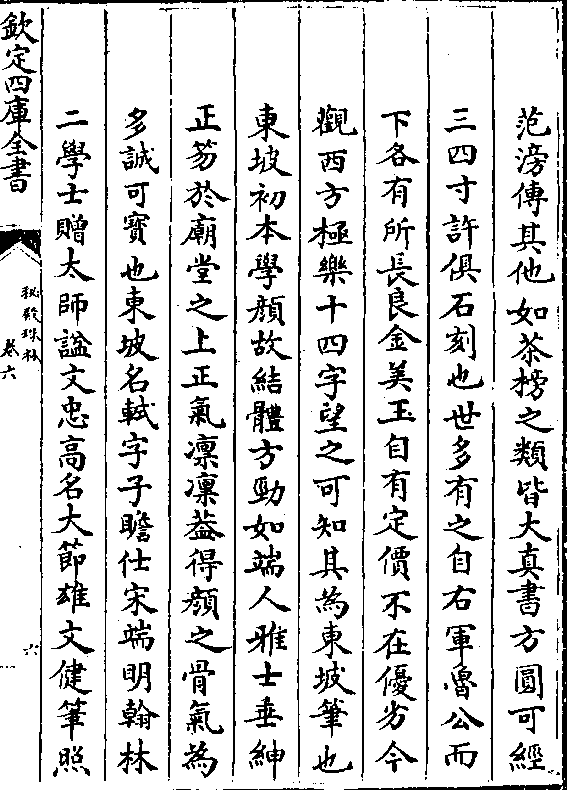 范滂傳其他如茶榜之類皆大真書方圓可經
三四寸許俱石刻也世多有之自右軍魯公而
下各有所長良金美玉自有定價不在優劣今
觀西方極樂十四字望之可知其為東坡筆也
東坡初本學顔故結體方勁如端人雅士垂紳
正笏於廟堂之上正氣凛凛葢得顔之骨氣為
多誠可寳也東坡名軾字子瞻仕宋端明翰林
二學士贈太師諡文忠高名大節雄文健筆照
欽定四庫全書
秘殿珠林
卷六
六